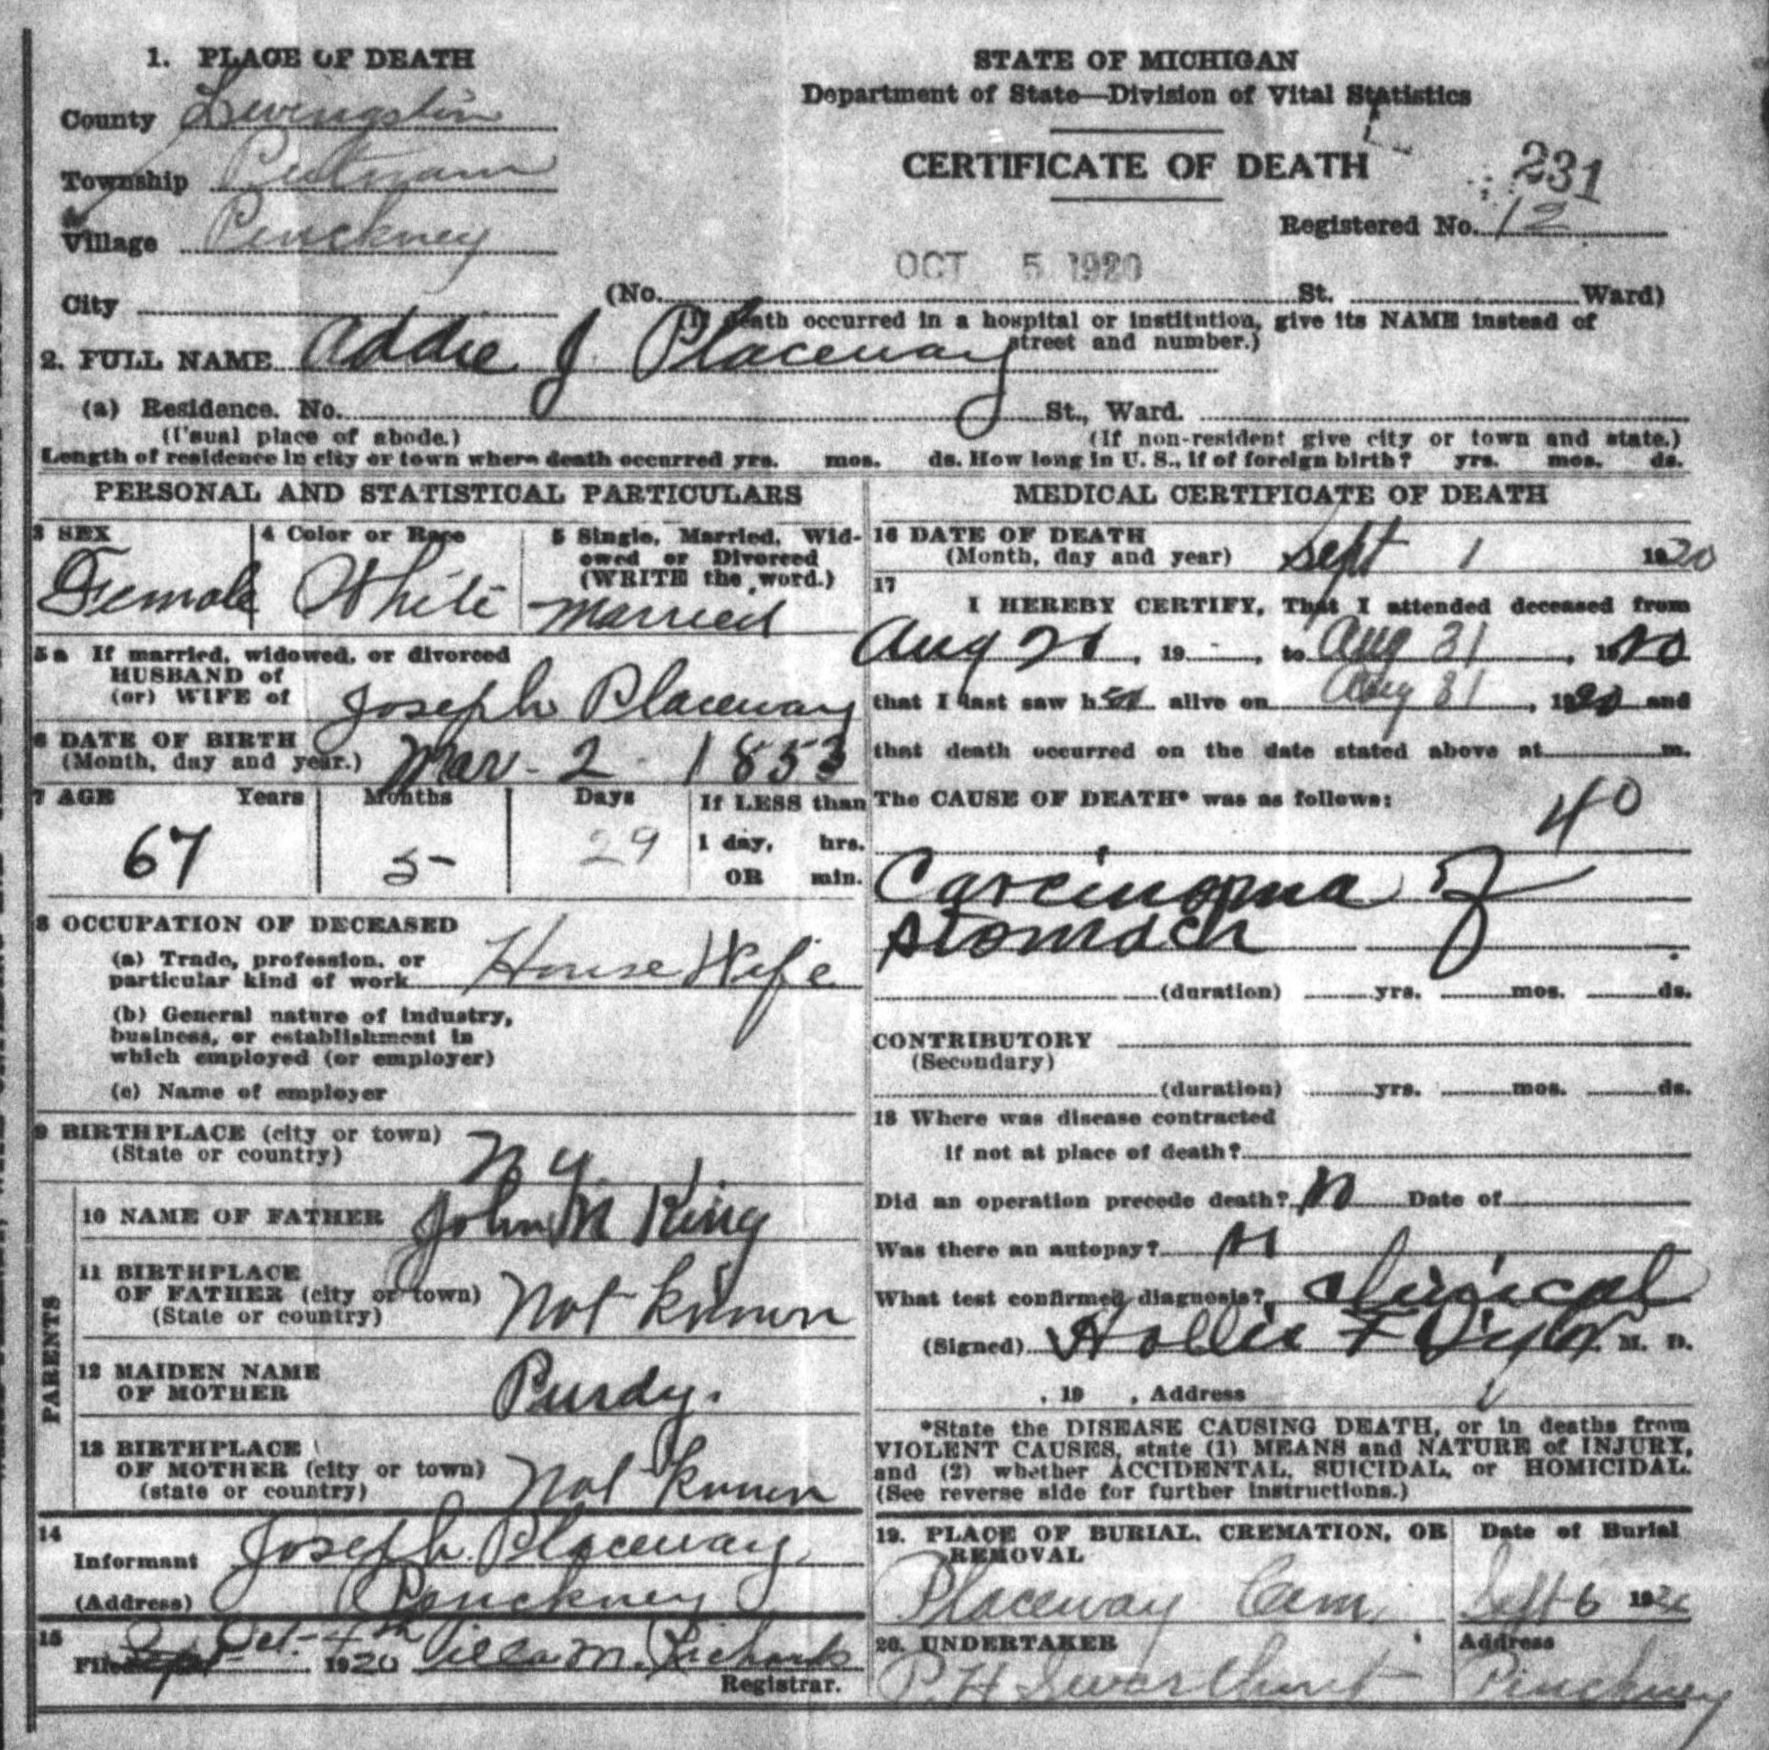 1. PLACE OF DEATH
County Livingston
Township Putnam
or
Village Pinckney
City
STATE OF MICHIGAN
Department of State—Division of Vital Statistics
CERTIFICATE OF DEATH
231
Registered No. 12
OCT 5 1920
(No. St. Ward)
(If death occurred in a hospital or institution, give its NAME instead of
street and number.)
2. FULL NAME Addie J Placeway
(a) Residence. No. St., Ward.
(Usual place of abode.) (If non-resident give city or town and state.)
Length of residence in city or town where death occurred yrs. mos. ds. How long in U. S., if of foreign birth? yrs. mos. ds.
PERSONAL AND STATISTICAL PARTICULARS
3 SEX
Female
4 Color or Race
White
5 Single, Married, Wid-
owed or Divorced
(WRITE the word.)
Married
5a If married, widowed, or divorced
HUSBAND of
(or) WIFE of Joseph Placeway
6 DATE OF BIRTH
(Month, day and year.) Mar - 2 - 1853
7 AGE Years Months Days If LESS than
1 day, hrs.
OR min.
67 5 29
8 OCCUPATION OF DECEASED
(a) Trade, profession, or
particular kind of work House Wife
(b) General nature of industry,
business, or establishment in
which employed (or employer)
(c) Name of employer
9 BIRTHPLACE (city or town)
(State or country) N Y
PARENTS
10 NAME OF FATHER John M King
11 BIRTHPLACE
OF FATHER (city or town)
(State or country) Not Known
12 MAIDEN NAME
OF MOTHER Purdy.
13 BIRTHPLACE
OF MOTHER (city or town)
(state or country) Not Known
14
Informant Joseph Placeway
(Address) Pinckney
15
Filed Sept Oct - 4th 1920 M. Richards
Registrar.
MEDICAL CERTIFICATE OF DEATH
16 DATE OF DEATH
(Month, day and year) Sept 1 1920
17
I HEREBY CERTIFY, That I attended deceased from
Aug 21, 19 , to Aug 31, 1920
that I last saw her alive on Aug 31, 1920 and
that death occurred on the date stated above at m.
The CAUSE OF DEATH* was as follows:
40
Carcinoma of
stomach
(duration) yrs. mos. ds.
CONTRIBUTORY
(Secondary)
(duration) yrs. mos. ds.
18 Where was disease contracted
if not at place of death?
Did an operation precede death? no Date of
Was there an autopsy? no
What test confirmed diagnosis? clinical
(Signed) Hollis F M. D.
, 19 , Address
*State the DISEASE CAUSING DEATH, or in deaths from
VIOLENT CAUSES, state (1) MEANS and NATURE of INJURY,
and (2) whether ACCIDENTAL, SUICIDAL, or HOMICIDAL.
(See reverse side for further instructions.)
19. PLACE OF BURIAL, CREMATION, OR
REMOVAL
Placeway Cem,
Date of Burial
Sept 6 1920
20. UNDERTAKER
P. H Swarthout
Address
Pinckney